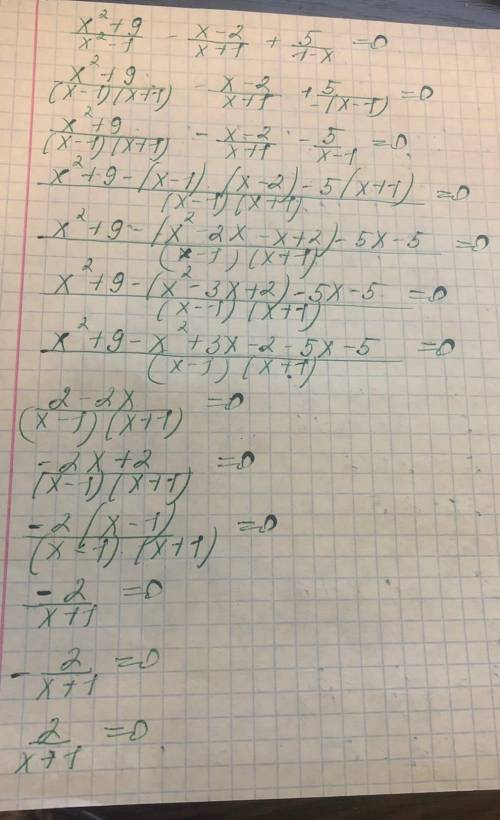 (x²+9)/(x²-1) - (x-2)/(x+1) + 5/(1-x) =0
(x²+9)/((x-1)(x+1)) - (x-2)/(x+1) + 5/(-(x-1)) =0
(x²+9)/((x-1)(x+1)) - (x-2)/(x+1) - 5/(x-1) =0
(x²+9-(x-1)·(x-2)-5(x+1))/((x-1)(x+1)) =0
(x²+9-(x²-2x-x+2)-5x-5)/((x-1)(x+1)) =0
(x²+9-(x²-3x+2)-5x-5)/((x-1)(x+1)) =0
(x²+9-x²+3x-2-5x-5)/((x-1)(x+1)) =0
(2-2x)/((x-1)(x+1)) =0
(-2x+2)/((x-1)(x+1)) =0
(-2(x-1))/((x-1)·(x+1)) =0
(-2)/(x+1) =0
- 2/(x+1) =0
2/(x+1) =0